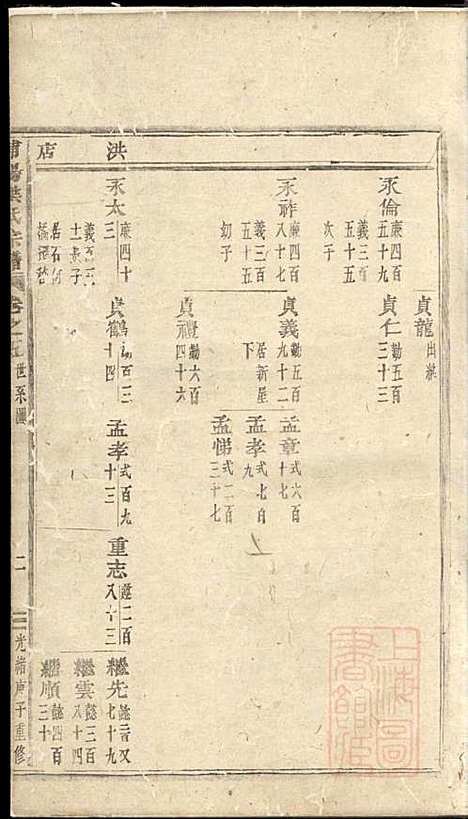 洪店
貞龍 出繼
永倫 廉四百五十九 義三百五十五 次子
貞仁 勤五百三十三
永祚 廉四百八十七 義三百五十五 幼子
貞義 勤五百九十二 居新屋下
孟章 式六百十七
孟孝 式七百九
孟悌 式二百三十七
貞禮 勤六百四十六
永太 廉四十三
貞鶴 十四
孟孝 式百九十三
重志 二百八十三
繼先 七十九
繼雲 懿三百八十四
繼順 懿四百三十
氏宗譜 卷之 世系圖 二 光緒庚子重修
上海圖書館藏